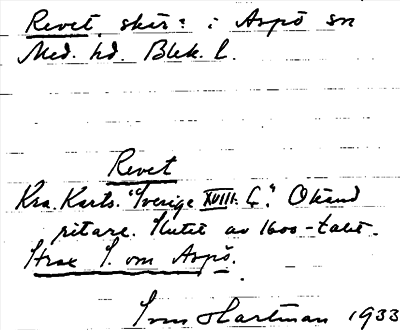 Revet, skär: i Aspö sn
Med. hd. Blek. l.
Revet
Kra. Karta. "Sverige XVIII. C." Okänd
ritare. Slutet av 1600-talet.
Strax S. om Aspö.
Hartman 1933